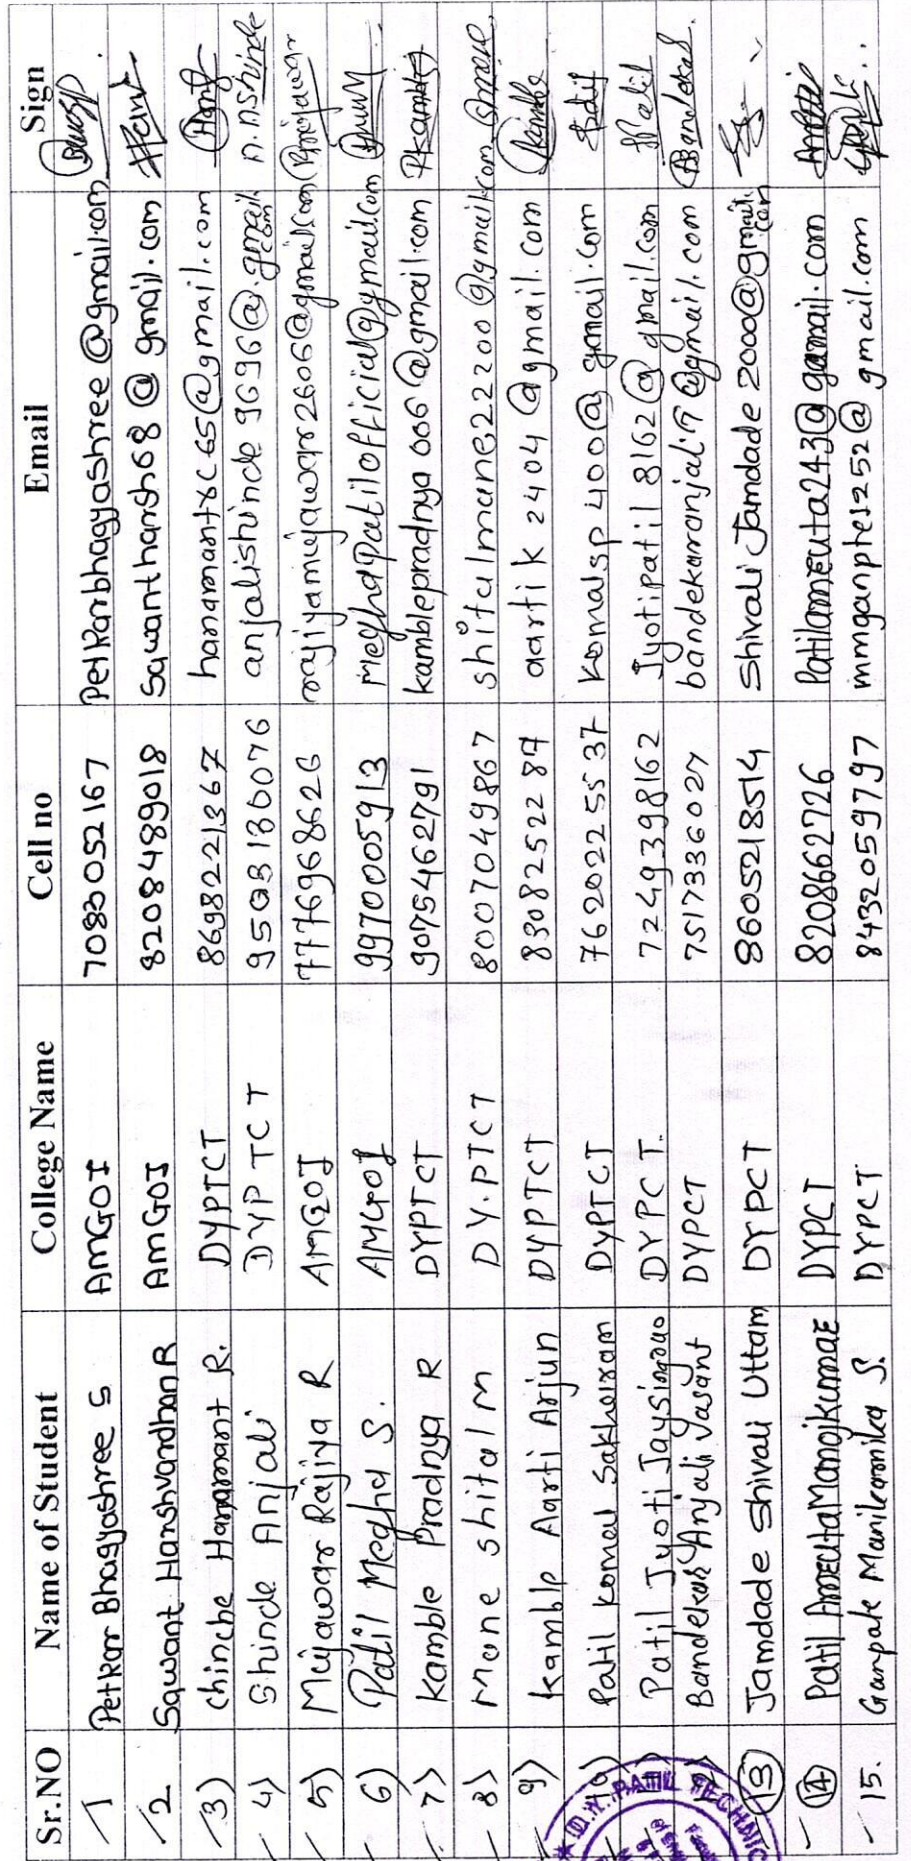 Sr.NO Name of Student College Name Cell no Email Sign
1 Petkar Bhagyashree S AMGOI 7083052167 Petkarbhagyashree@gmail.com
2 Sawant Harshvardhan R AMGOI 8208489018 Sawanthansh68@gmail.com
3) Chinche Hanamant R. DYPTCT 8698221367 hanamantrc65@gmail.com
4) Shinde Anjali DYPTCT anjalishinde9696@gmail.com A.A.Shinde
5) Mujawar Rajiya R AMGOI 7776968626 rajiyamujawar2606@gmail.com Rmujawar
6) Patil Megha S. AMGOI 9970005913 meghapatilofficial@gmail.com
7) Kamble Pradnya R DYPTCT 9075462791 kamblepradnya606@gmail.com PKamble
8) Mane Shital M D.Y.PTCT 8007049867 shitalmane22200@gmail.com Smane
9) Kamble Aarti Arjun DYPTCT 8308252287 aartik2404@gmail.com AKamble
10) Patil Komal Sakharam DYPTCT 7620225537 Komalsp400@gmail.com
11) Patil Jyoti Jaysingrao DYPCT. 7249398162 Jyotipatil8162@gmail.com
12) Bandekar Anjali Vasant DYPCT 7517336027 bandekaranjali7@gmail.com ABandekar
13 Jamdade Shivali Uttam DYPCT 8605218514 ShivaliJamdade2000@gmail.com
14 Patil Ameuta Manojkumae DYPCT 8208662726 Patilameuta243@gamail.com
15. Ganpate S. DYPCT 8432059797 mmganpte5252@gmail.com
D.Y. PATIL TECHNIC